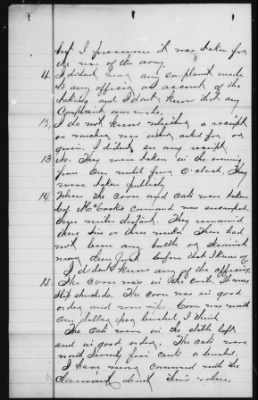 but I presume it was taken for
the use of the army.
11. I didn't make any complaint made
to any officer on account of the
taking and I don't know that any
Complaint was made.
12. I do not know whether a receipt
or voucher was either asked for or
given. I didn't see any receipt
13 No. They were taken in the evening
from one until five O'clock. They
were taken publicly
14. When the corn and oats were taken
by McCook's command was encamped
miles distant. They remained
there two or three weeks. There had
not been any battle or skirmish
near there just before that I know of
I didn't know any of the officers
15. The corn was in the crib. It was
slip shucked. The corn was in good
order and was ripe. Corn was worth
one dollar per bushel I think.
The oats were in the stable loft
and in good order. The oats were
worth seventy five cents a bushel.
I have never conversed with the
claimant about their value.